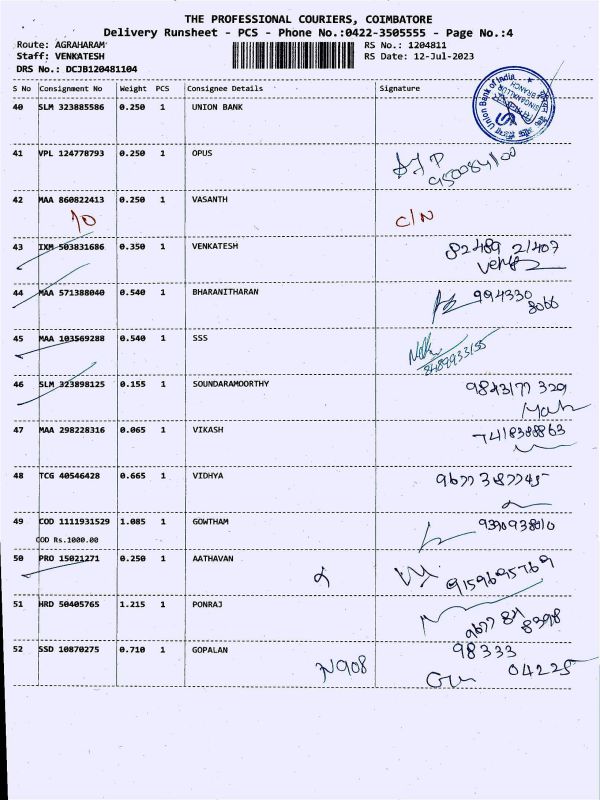 THE PROFESSIONAL COURIERS, COIMBATORE
Delivery Runsheet - PCS - Phone No.:0422-3505555 - Page No.:4
Route: AGRAHARAM RS No.: 1204811
Staff: VENKATESH RS Date: 12-Jul-2023
DRS No.: DCJB120481104
S No Consignment No Weight PCS Consignee Details Signature
40 SLM 323885586 0.250 1 UNION BANK
Union Bank of India
SINGANALLUR
BRANCH
41 VPL 124778793 0.250 1 OPUS
42 MAA 860822413 0.250 1 VASANTH
C/N
43 IXM 503831686 0.350 1 VENKATESH 82489 21407
44 MAA 571388040 0.540 1 BHARANITHARAN 994330
8066
45 MAA 103569288 0.540 1 SSS
8489933155
46 SLM 323898125 0.155 1 SOUNDARAMOORTHY 9843177 329
47 MAA 298228316 0.065 1 VIKASH 7418388863
48 TCG 40546428 0.665 1 VIDHYA 9677387745
49 COD 1111931529 1.085 1 GOWTHAM
COD Rs.1000.00
50 PRO 15021271 0.250 1 AATHAVAN 9159695769
51 HRD 50405765 1.215 1 PONRAJ
8398
52 SSD 10870275 0.710 1 GOPALAN 98333
N908 04225